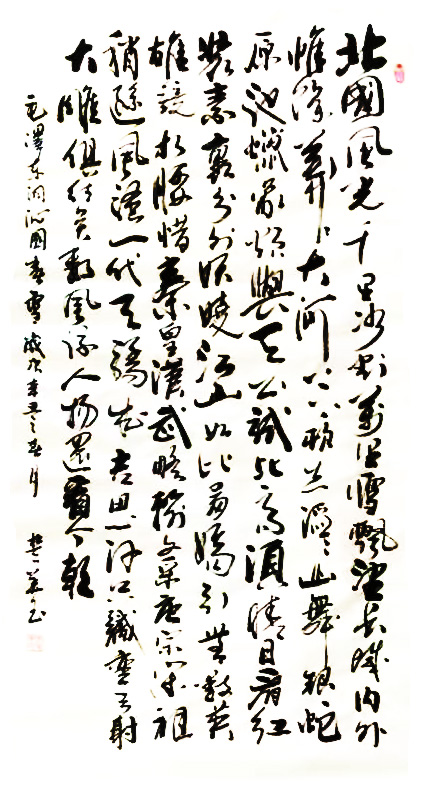 北國風光千里冰封萬里雪飄望長城内外
惟餘莽莽大河上下頓失滔滔山舞銀蛇
原馳蠟象欲與天公試比高須晴日看紅
裝素裹分外妖嬈江山如此多嬌引無數英
雄競折腰惜秦皇漢武略輸文采唐宗宋祖
稍遜風騷一代天驕成吉思汗只識彎弓射
大雕俱往矣數風流人物還看今朝
毛澤東詞沁園春雪歲次辛丑之春月